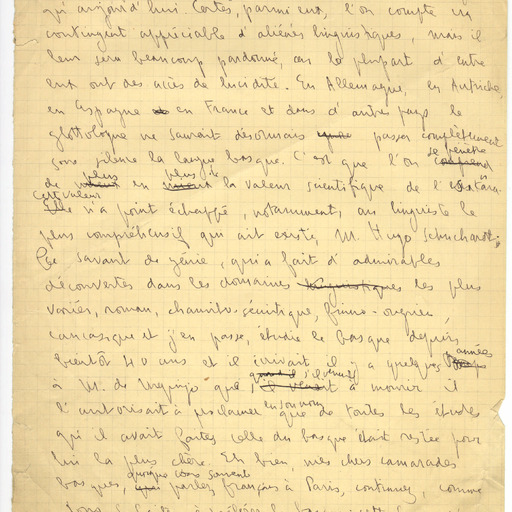 qui aujourd'hui. Certes, parmi eux, l'on compte un
contingent appréciable d'aliénés linguistiques, mais il
leur sera beaucoup pardonné, car la plupart d'entre
eux ont des accès de lucidité. En Allemagne, en Autriche,
en Espagne en France et dans d'autres pays le
glottologue ne saurait désormais passer complètement
sous silence la langue basque. C'est que l'on se pénètre
de plus en plus de la valeur scientifique de l'
cette valeur
Elle n'a point échappé, notamment, au linguiste le
plus compréhensif qui ait existé, M. Hugo Schuchardt;
Ce savant de génie, qui a fait d'admirables
découvertes dans les domaines linguistiques les plus
variés, roman, chamito-sémitique, finno-ougrien,
caucasique et j'en passe, étudie le basque depuis
bientôt 40 ans et il écrivait il y a quelques années
à M. de Urquijo que s'il venait à mourir il
l'autorisait à proclamer en son nom que de toutes les études
qu'il avait faites celle du basque était restée pour
lui la plus chère. Eh bien, mes chers camarades
basques, quoique vous sachiez parler français à Paris, continuez, comme